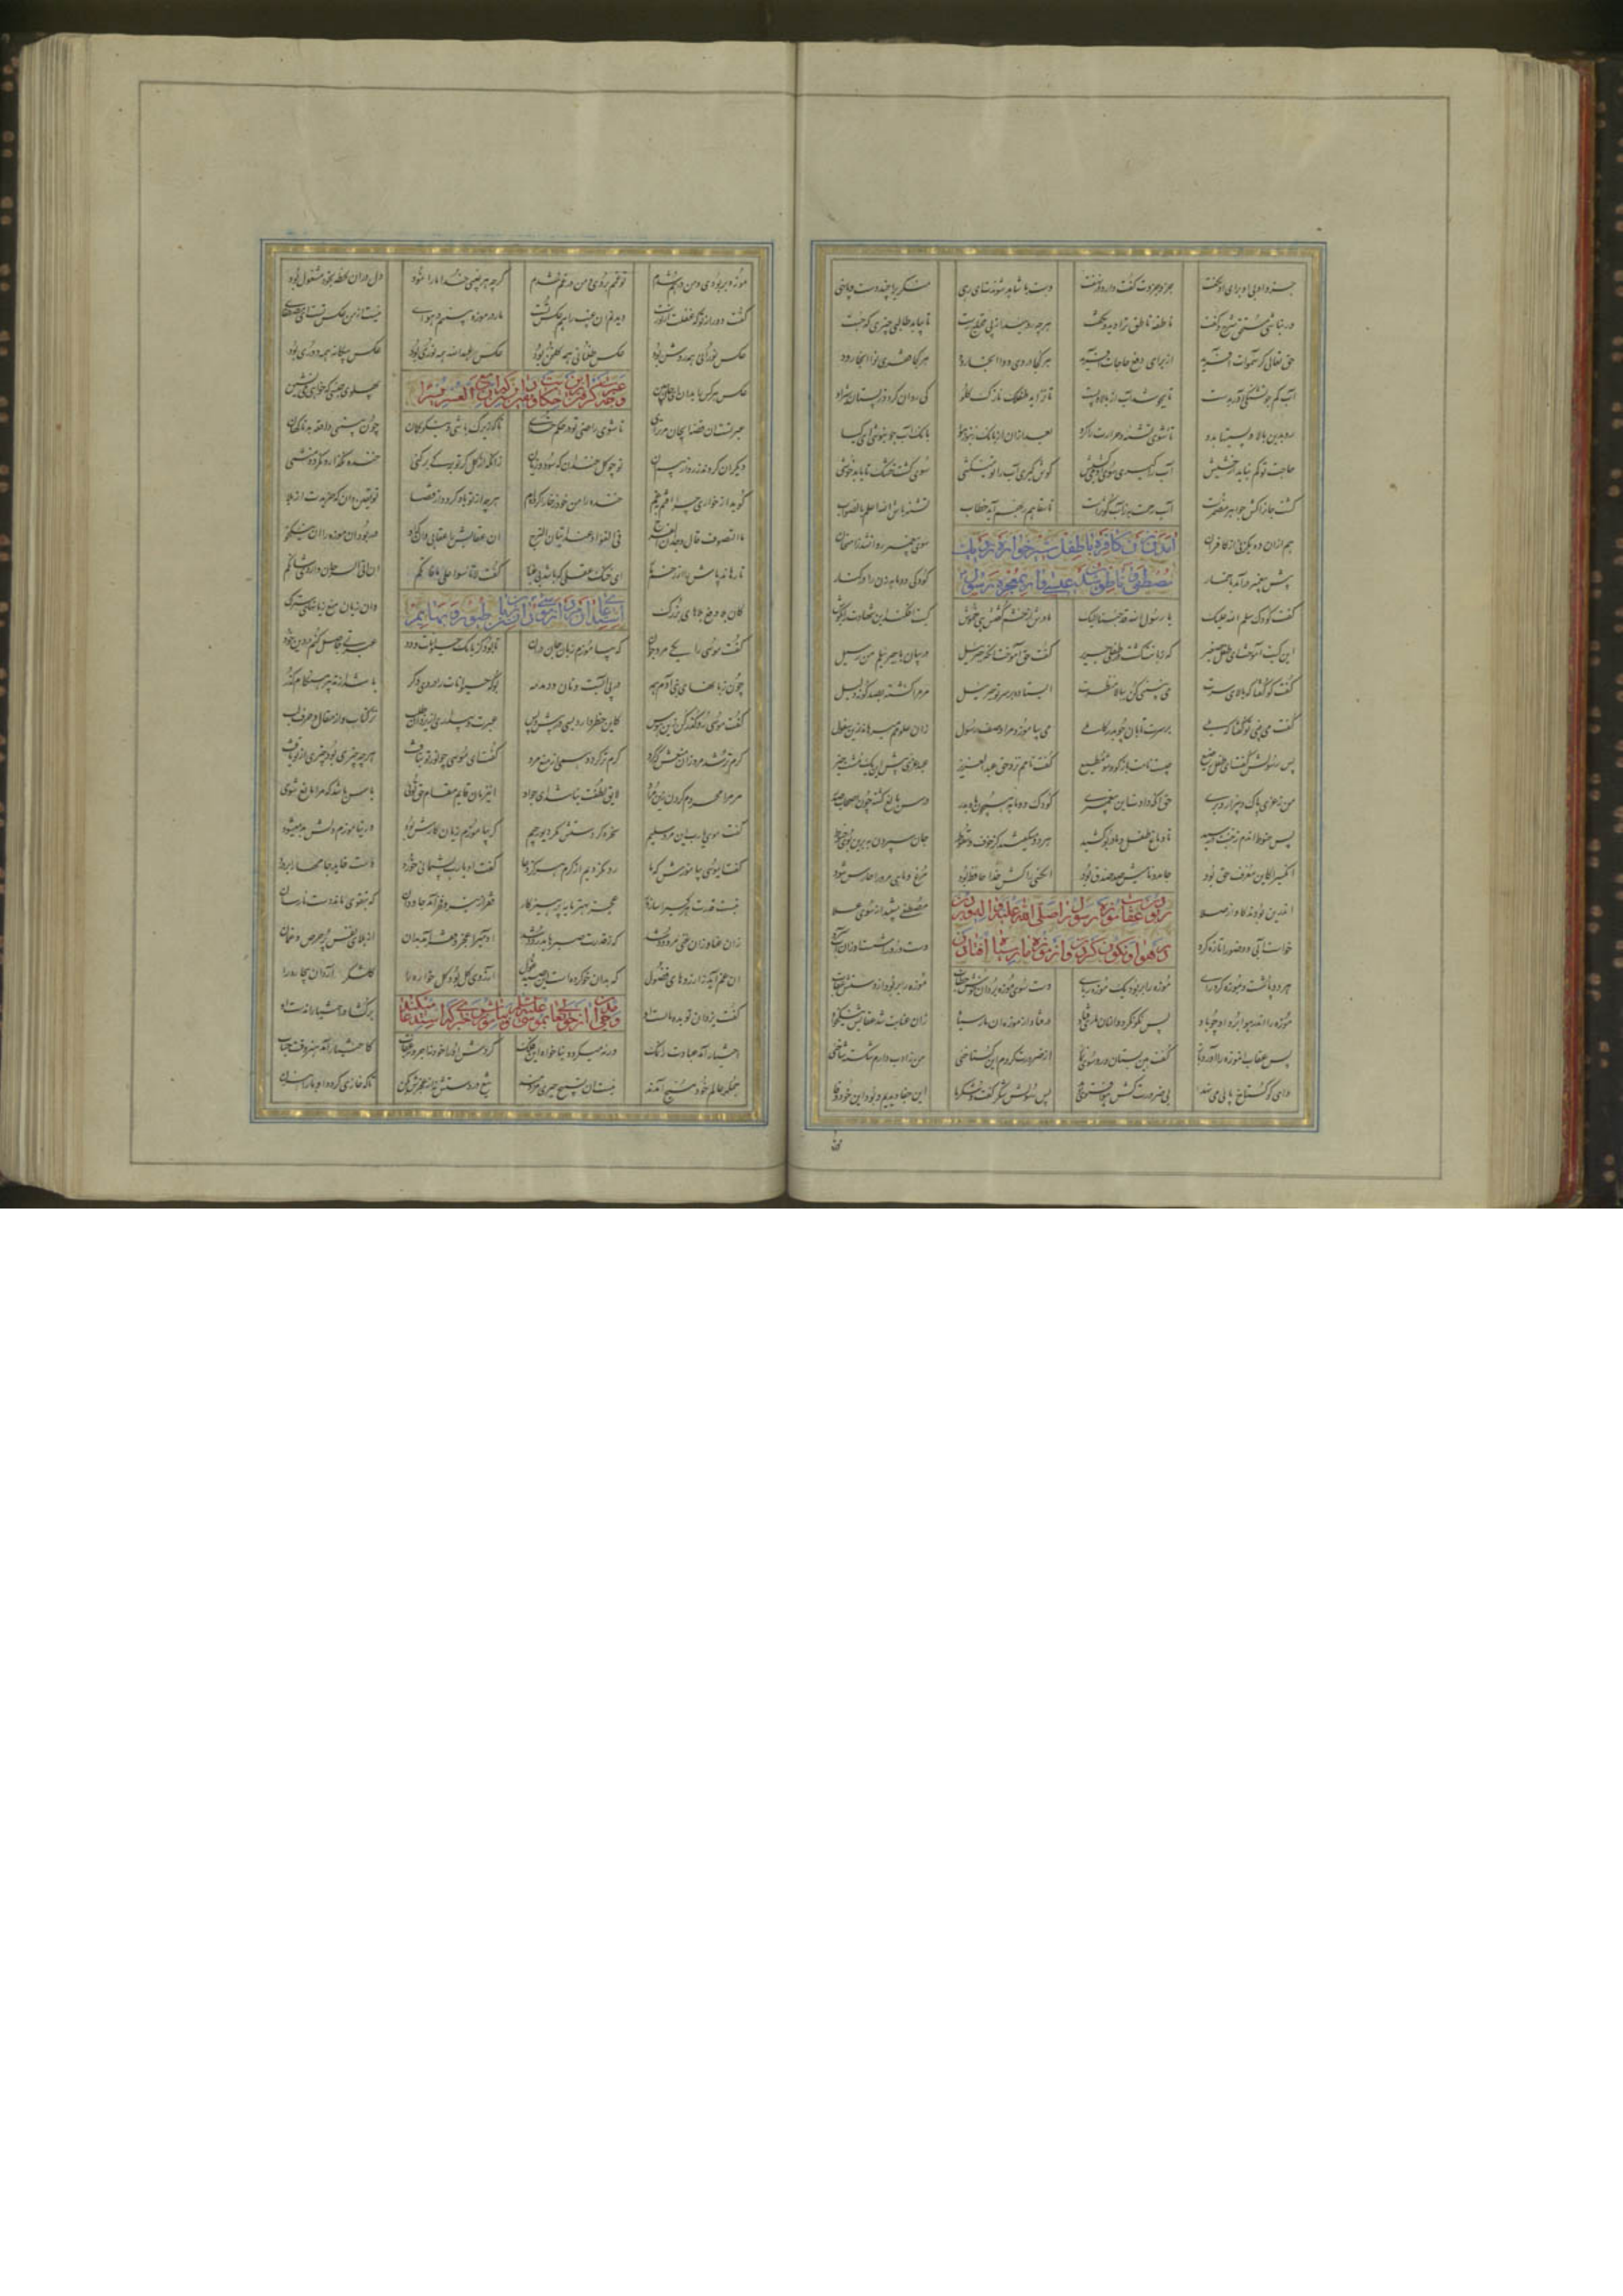 جزو او بی او برای او بگفت جزو جزوت گفت دارد در نهفت دست و پا شاهد شوندت ای رهی منکری را چند دست و پا نهی
ور نباشی مستحق شرح و گفت ناطقه ناطق ترا دید و بخفت هرچه روید از پی محتاج رست تا بیابد طالبی چیزی که جست
حق تعالی کر سموات آفرید از برای دفع حاجات آفرید هر کجا دردی دوا آنجا رود هر کجا فقری نوا آنجا رود
آب کم جو تشنگی آور بدست تا بجوشد آب از بالا و پست تا نزاید طفلک نازک گلو کی روان گردد ز پستان شیر او
رو بدین بالا و پستیها بدو تا شوی تشنه و حرارت را گرو بعد ازان از بانک زنبور هوا بانک آب جو بنوشی ای کیا
حاجت تو کم نباشد از حشیش آب را گیری سوی او میکشیش گوش گیری آب را تو میکشی سوی کشت خشک تا یابد خوشی
کشت جانرا کش جواهر مضمرست آب رحمت پر ز آب کوثرست تا سقاهم ربهم آید خطاب تشنه باش الله اعلم بالصواب
هم ازان ده یک زنی از کافران سوی پیغمبر دوان شد ز امتحان
آمدن آن زن کافره با طفل شیرخواره نزدیک
پیش پیغمبر درآمد با خمار کودکی دو ماهه زن را در کنار
مصطفی و ناطق شدن عیسی وار بمعجزه رسول
گفت کودک سلم الله علیک یا رسول الله قد جئنا الیک مادرش از خشم گفتش هی خموش کیت افکند این شهادت را بگوش
این کیت آموخت ای طفل صغیر که زبانت گشت در طفلی جریر گفت حق آموخت آنگه جبرئیل در بیان با جبرئیلم من رسیل
گفت کو گفتا که بالای سرت می نبینی کن ببالا منظرت ایستاده بر سر تو جبرئیل مر مرا گشته بصد گونه دلیل
گفت می بینی تو گفتا که بلی بر سرت تابان چو بدر کاملی می بیاموزد مرا وصف رسول زان علوم میرهاند زین سفول
پس رسولش گفت ای طفل رضیع چیست نامت باز گو و شو مطیع گفت نامم نزد حق عبد العزیز عبد عزی پیش این یک مشت حیز
من ز عزی پاک و بیزار و بری حق آنکه دادت این پیغمبری کودک دو ماهه همچون ماه بدر درس بالغ گفته چون اصحاب صدر
پس حنوط آندم ز جنت در رسید تا دماغ طفل و مادر بو کشید هر دو میگفتند کز خوف سقوط جان سپردن به برین بوی حنوط
آنکسی را کش معرف حق بود جامد و نامیش صد صدق بود آنکسی را کش خدا حافظ بود مرغ و ماهی مر ورا حارس شود
اندرین بودند کاواز صلا مصطفی بشنید از سوی علا
ربودن عقاب موزه رسول را صلی الله علیه و
خواست آبی و وضو را تازه کرد دست و رو را شست او زان آب سرد
بر هوا و نگون کردن و از موزه مار سیاه افتادن
هر دو پا شست و بموزه کرد رای موزه را بربود یک موزه ربای دست سوی موزه برد آن خوش خطاب موزه را بربود از دستش عقاب
موزه را اندر هوا برد او چو باد پس نگون کرد و ازان ماری فتاد در فتاد از موزه آن مار سیاه زان عنایت شد عقابش نیکخواه
پس عقاب آن موزه را آورد باز گفت هین بستان و رو سوی نماز از ضرورت کردم این گستاخی من ز ادب دارم شکسته شاخی
وای کو گستاخ پایی می نهد بی ضرورت کش هوا فتوی دهد پس رسولش شکر گفت و گفت ما این جفا دیدیم و بود این خود وفا
موزه بربودی و من درهم شدم تو غمم بردی و من در غم شدم گرچه هر غیبی خدا ما را نمود دل دران لحظه بخود مشغول بود
گفت دور از تو که غفلت از تو رست دیدنم آن غیب را هم عکس تست مار در موزه ببینم در هوا نیست از من عکس تست ای مصطفی
عکس نورانی همه روشن بود عکس ظلمانی همه گلخن بود عکس عبد الله همه نوری بود عکس بیگانه همه دوری بود
عکس هر کس را بدان ای جان ببین پهلوی جنسی که خواهی می نشین
عبرتست آن قصه ای جان مر ترا تا شوی راضی تو در حکم خدا تا که زیرک باشی و نیکو گمان چون ببینی واقعه بد ناگهان
دیگران گردند زرد از بیم آن تو چو گل خندان گه سود و زیان زانکه از گل گر تو برگش برکنی خنده نگذارد نگردد منثنی
گوید از خاری چرا افتم بغم خنده را من خود ز خار آورده ام هر چه از تو یاوه گردد از قضا تو یقین دان که خریدت از بلا
ما التصوف قال وجدان الفرح فی الفؤاد عند اتیان الترح آن عقابش را عقابی دان که او در ربود آن موزه را زان نیکخو
تا رهاند پاش را از زخم مار ای خنک عقلی که باشد بی غبار گفت لا تأسوا علی ما فاتکم ان اتی السرحان و اردی شاتکم
گفت موسی را یکی مرد جوان که بیاموزم زبان جانوران تا بود کز بانک حیوانات و دد عبرتی حاصل کنم در دین خود
چون زبانهای بنی آدم همه در پی آبست و نان و دمدمه بوک حیوانات را دردی دگر باشد از تدبیر هنگام گذر
گفت موسی رو گذر کن زین هوس کاین خطر دارد بسی در پیش و پس عبرت و بیداری از یزدان طلب نز کتاب و از مقال و حرف و لب
گرم تر شد مرد زان منعش که کرد گرم تر گردد همی از منع مرد گفت ای موسی چو نور تو بتافت هر چه چیزی بود چیزی از تو یافت
مر مرا محروم کردن زین مراد لایق لطفت نباشد ای جواد این زمان قایم مقام حق توئی یاس باشد گر مرا مانع شوی
گفت موسی یا رب این مرد سلیم سخره کردستش مگر دیو رجیم گر بیاموزم زیان کارش بود ور نیاموزم دلش بد میشود
گفت ای موسی بیاموزش که ما رد نکردیم از کرم هرگز دعا گفت یا رب او پشیمانی خورد دست خاید جامها را بردرد
نیست قدرت هر کسی را سازوار عجز بهتر مایه پرهیزکار فقر ازین رو فخر آمد جاودان که بتقوی ماند دست نارسان
زان غنا و زان غنی مردود شد که ز قدرت صبرها بدرود شد آدمی را عجز و فقر آمد امان از بلای نفس پر حرص و غمان
آن غم آید ز آرزوهای فضول که بدان خو کرده است آن صید غول آرزوی گل بود گل خواره را گلشکر نگوارد آن بیچاره را
گفت یزدان تو بده بایست او برگشا در اختیار آن دست او
اختیار آمد عبادت را نمک ورنه میگردد بناخواه این فلک گردش او را نه اجر و نه عقاب کاختیار آمد هنر وقت حساب
جمله عالم خود مسبح آمدند نیست آن تسبیح جبری مزدمند تیغ در دستش نه از عجزش بکن تا که غازی گردد او یا راهزن